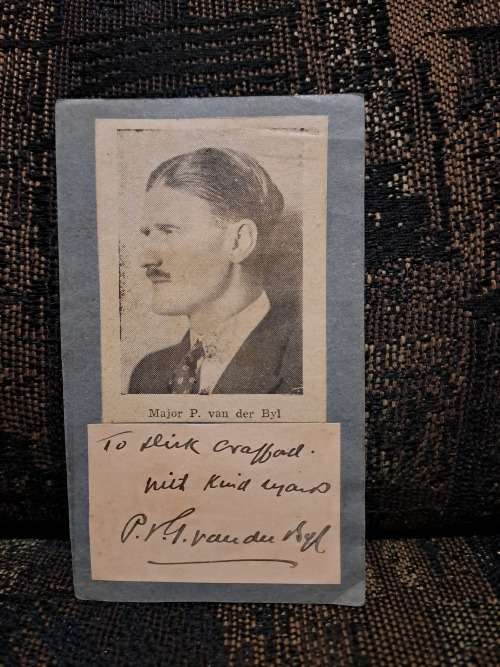 Major P. van der Byl
To Dirk Crafford.
with Kind regards
P. V. G. van der Byl